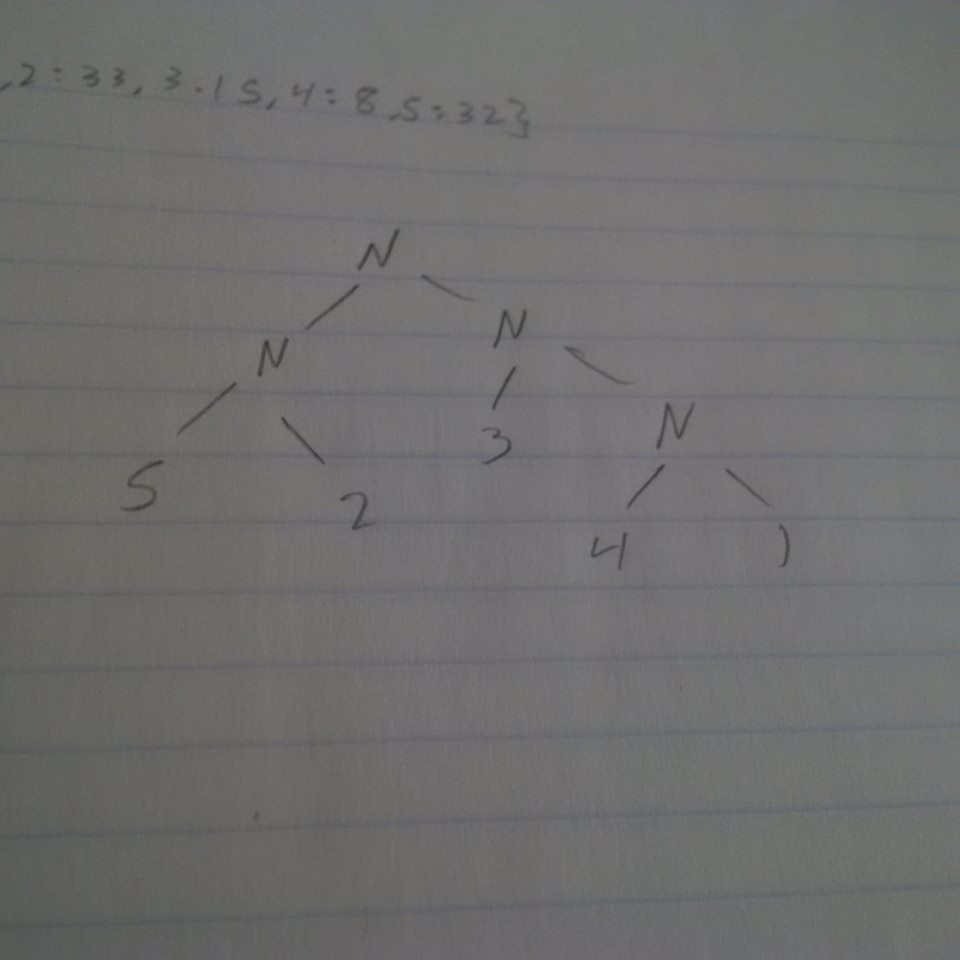 ,2:33, 3:15, 4:8,5:32}
N
N
N
5 2 3 N
4 1